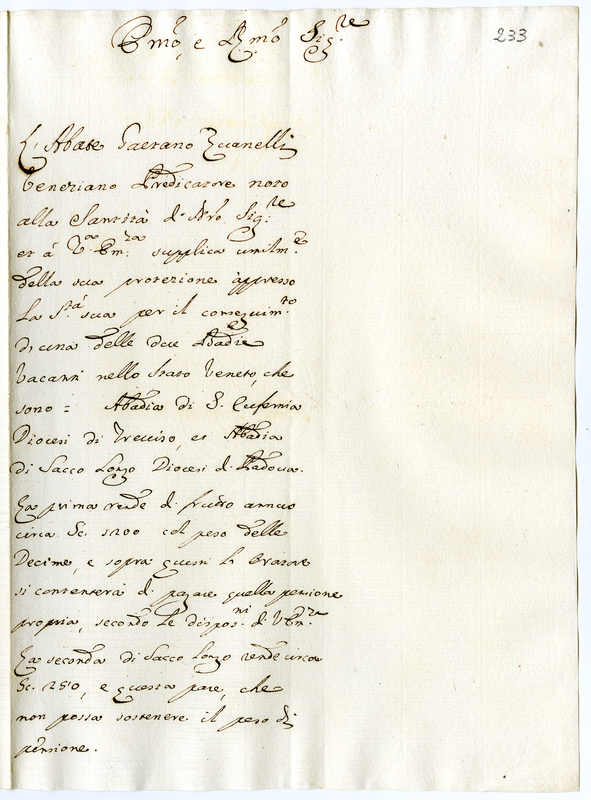 233
Emõ, e Rmõ Sig.re
L'Abate Gaetano Zuanelli
Veneziano Predicatore noto
alla Santità d. Nrõ. Sig:re
et à V.a Em:za supplica umilm.e
della sua protezione appresso
la S.tà sua per il conseguim.to
di una delle due Abadie
vacanti nello Stato Veneto, che
sono: Abadia di S. Eufemia
Diocesi di Treviso, et Abadia
di Sacco Longo Diocesi d. Padova.
La prima rende d. frutto annuo
circa Sc. 1200 col peso delle
Decime, e sopra questi l'Oratore
si contenterà d. pagare quella pensione
propria, secondo le dispos.ni d. V. Em.za
La seconda di Sacco Longo rende circa
Sc. 250, e questa pare, che
non possa sostenere il peso di
pensione.